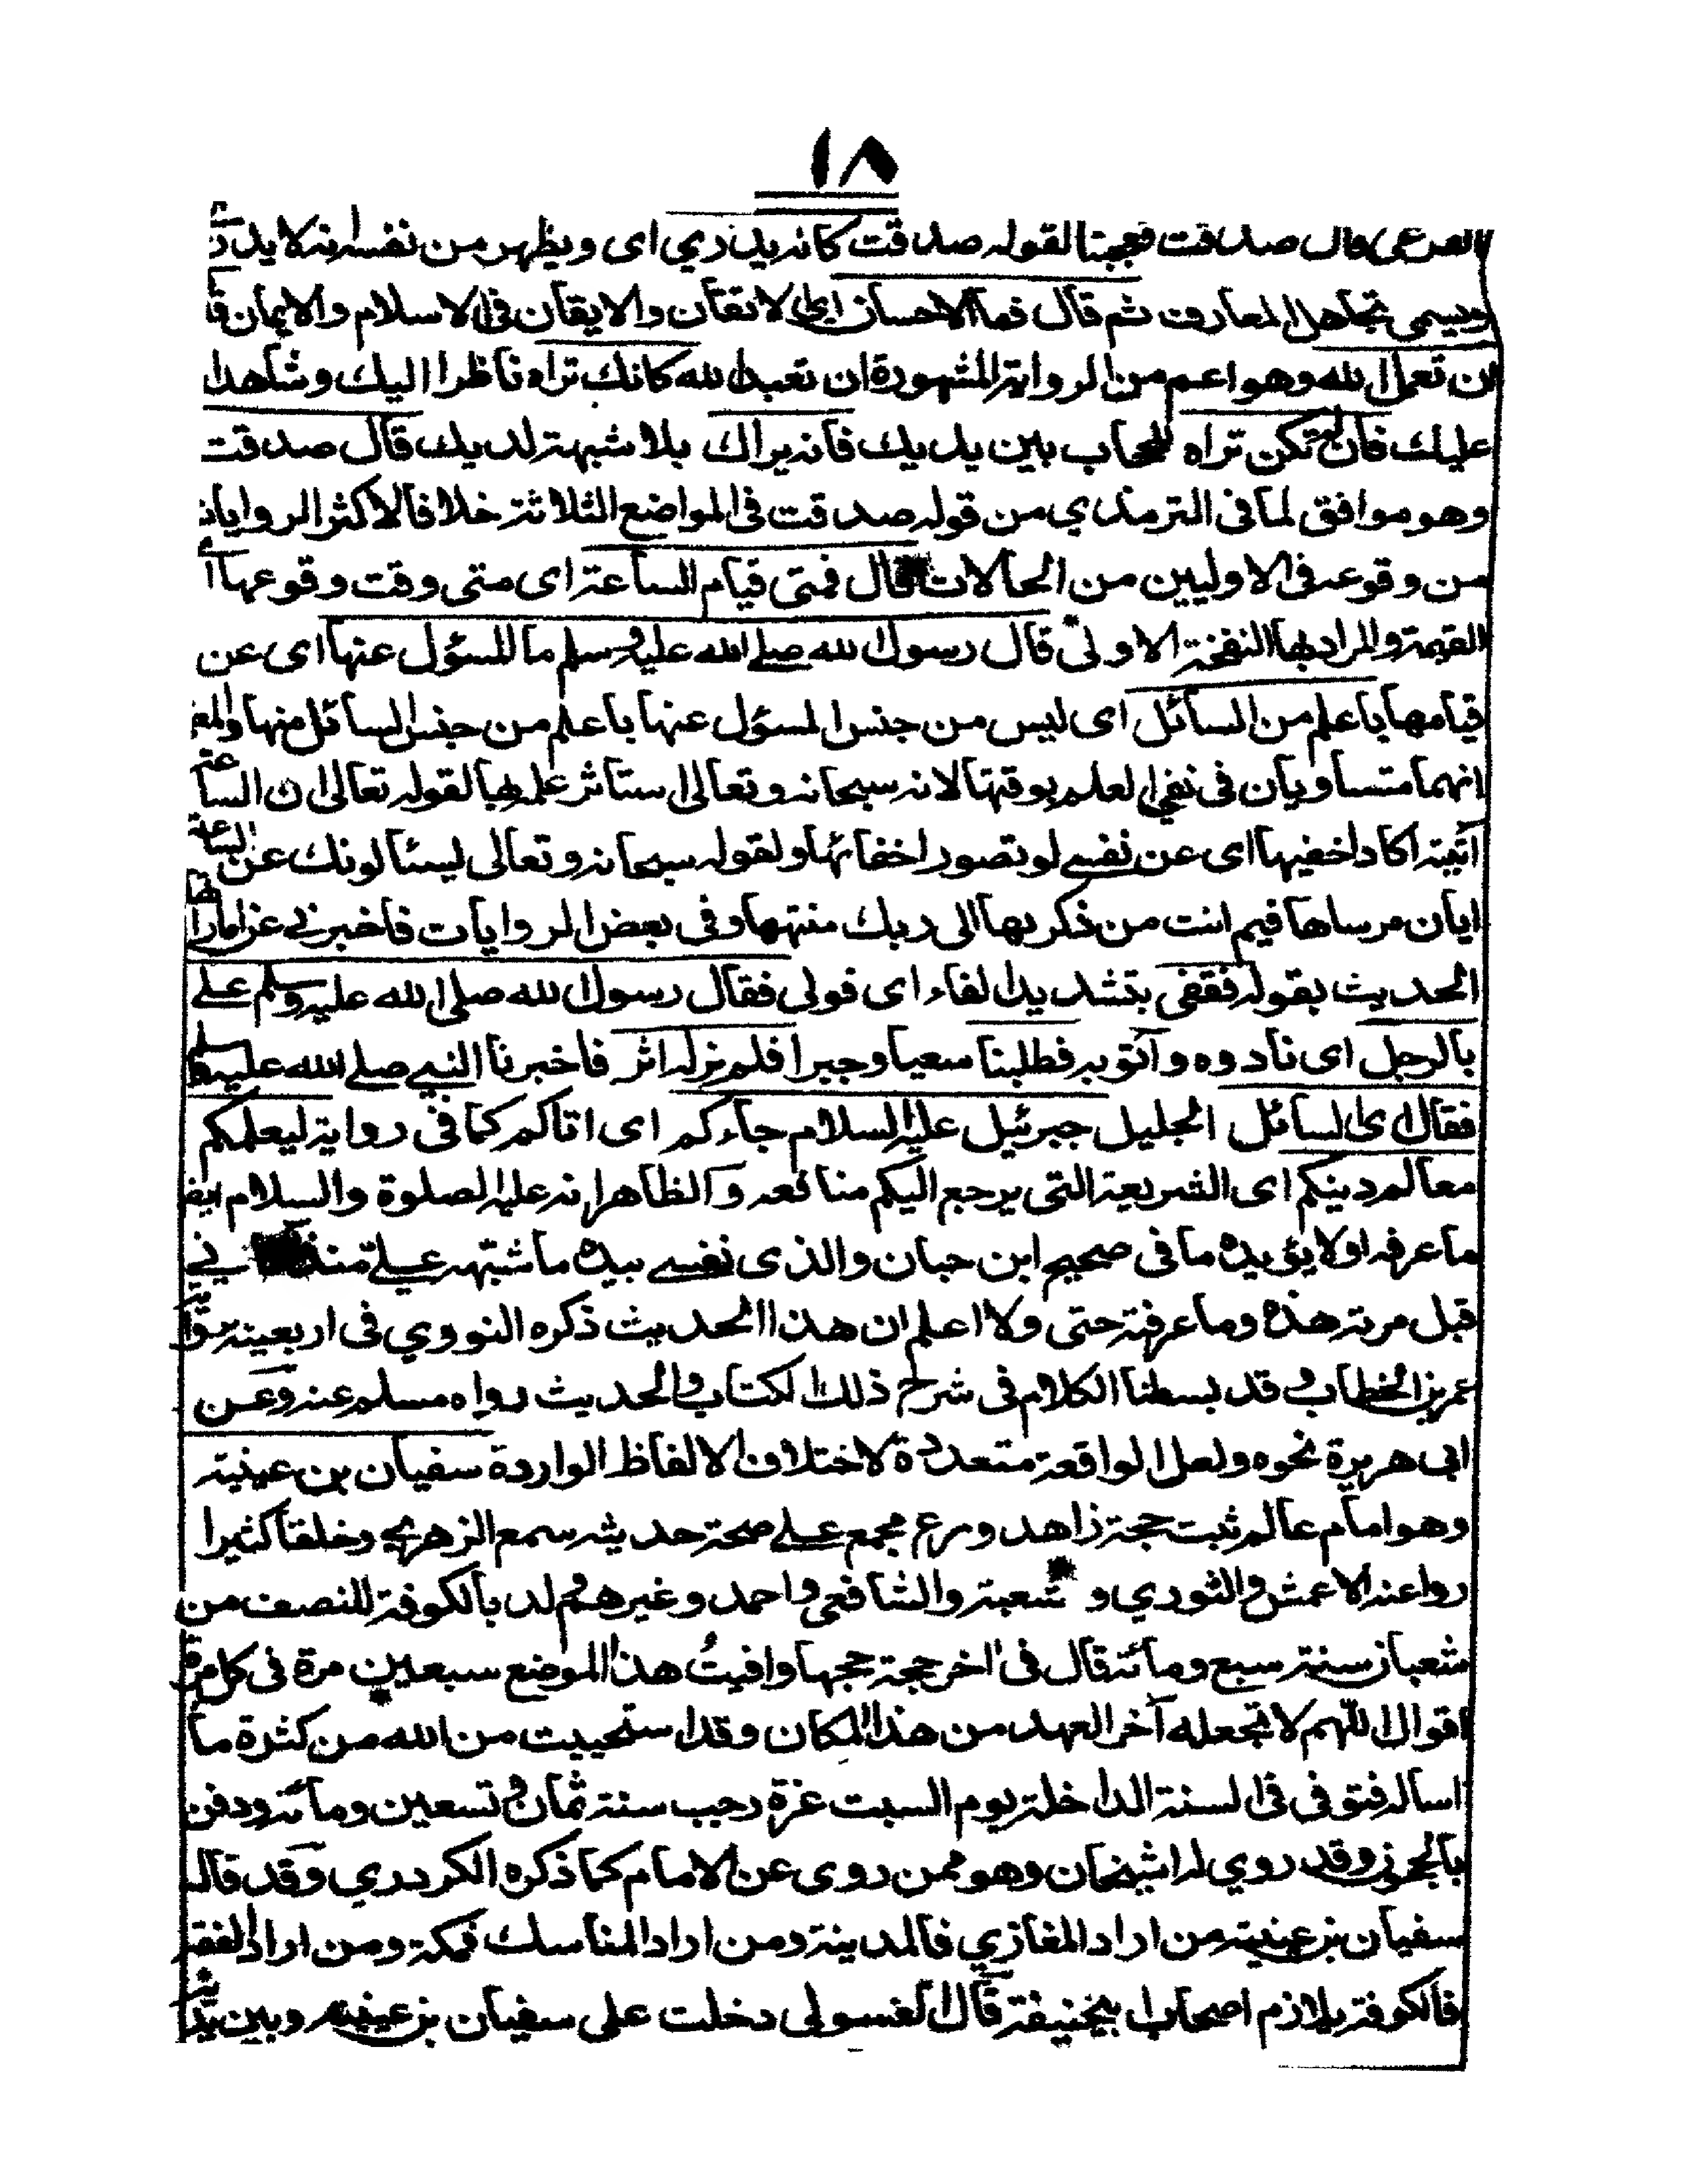 ١٨
قال صدقت فعجبنا لقوله صدقت كانه يدري اى ويظهر من نفسه انه لا يدري
ويسمى تجاهل المعارف ثم قال فما الاحسان اى الاتقان والايقان فى الاسلام والايمان قا
ان تعمل لله وهو اعم من الرواية المشهورة ان تعبد الله كانك تراه ناظرا اليك وشاهدا
عليك فان لم تكن تراه للحجاب بين يديك فانه يراك بلا شبهة لديك قال صدقت
وهو موافق لما فى الترمذي من قوله صدقت فى المواضع الثلاثة خلافا لاكثر الروايات
من وقوعه فى الاوليين من الحالات قال فمتى قيام الساعة اى متى وقت وقوعها
القيمة والمراد بها النفخة الاولى قال رسول الله صلے الله عليه وسلم ما المسؤل عنها اى عن
قيامها باعلم من السائل اى ليس من جنس المسؤل عنها باعلم من جنس السائل منها والمع
انهما متساويان فى نفى العلم بوقتها لانه سبحانه وتعالى استاثر علمها لقوله تعالى ان الساعة
آتية اكاد اخفيها اى عن نفسے لو تصور اخفائها ولقوله سبحانه وتعالى يسئالونك عن الساعة
ايان مرساها فيم انت من ذكربها الى ربك منتهها وفى بعض الروايات فاخبرنے عن اماراتها
الحديث بقوله فقفى بتشديد الفاء اى فولى فقال رسول الله صلى الله عليه وسلم علے
بالرجل اى نادوه وآتو به فطلبنا سعيا وجبرا فلم نر له اثر فاخبرنا النبے صلے الله عليه وسلم
فقال اى السائل الجليل جبرئيل عليه السلام جاءكم اى اتاكم كما فى رواية ليعلمكم
معالم دينكم اى الشريعة التى يرجع اليكم منافعه والظاهر انه عليه الصلوة والسلام ايض
ما عرفه اولا يؤيده ما فى صحيح ابن حبان والذى نفسے بيده ما شبّه علےّ منذ نے
قبل مرته هذه وما عرفته حتى ولا اعلم ان هذا الحديث ذكره النووي فى اربعينه
عمر بن الخطاب وقد بسطنا الكلام فى شرح ذلك الكتاب والحديث رواه مسلم عنه وعن
ابى هريرة نحوه ولعل الواقعة متعددة لاختلاف الالفاظ الواردة سفيان بن عينية
وهو امام عالم ثبت حجة زاهد ورع مجمع علے صحة حديثه سمع الزهري وخلقا كثيرا
روا عنه الاعمش والثوري و شعبة والشافعى واحمد وغيرهم ولد بالكوفة للنصف من
شعبان سنة سبع ومائة قال فى اخر حجة حجها وافيتُ هذا الموضع سبعين مرة فى كل مرة
اقول اللّهم لا تجعله آخر العهد من هذا المكان وقد استحييت من الله من كثرة ما
اساله فتوفى فى السنة الداخلة يوم السبت غرة رجب سنة ثمان وتسعين ومائة ودفن
بالحجون وقد روي له الشيخان وهو ممن روى عن الامام كما ذكره الكردري وقد قال
سفيان بن عينية من اراد المغازي فالمدينة ومن اراد المناسك فمكة ومن اراد الفقه
فالكوفة يلازم اصحاب ابيحنيفة قال الغسولى دخلت على سفيان بن عينيه وبين يد